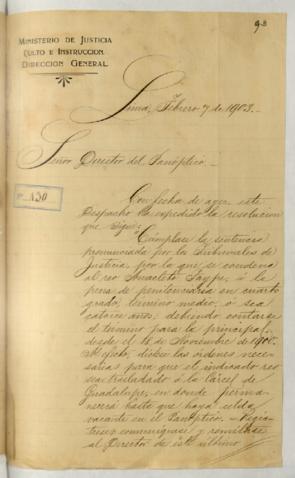 98
MINISTERIO DE JUSTICIA
CULTO E INSTRUCCION.
DIRECCION GENERAL.
Lima, Febrero 7 de 1903.
Señor Director del Panóptico.
Nº 130
Con fecha de ayer este
Despacho ha expedido la resolucion
que sigue:
"Cúmplase la sentencia
pronunciada por los Tribunales de
Justicia, por la que se condena
al reo Anacleto á la
pena de penitenciaría en cuarto
grado, término medio, ó sea
catorce años; debiendo contarse
el término para la principal,
desde el 18 de Noviembre de 1900.
díctense las órdenes nece-
sarias para que el indicado reo
sea trasladado á la Cárcel de
Guadalupe, en donde perma-
necerá hasta que haya celda
vacante en el Panóptico. Regís-
trese, comuníquese y remítase
al Director de este último